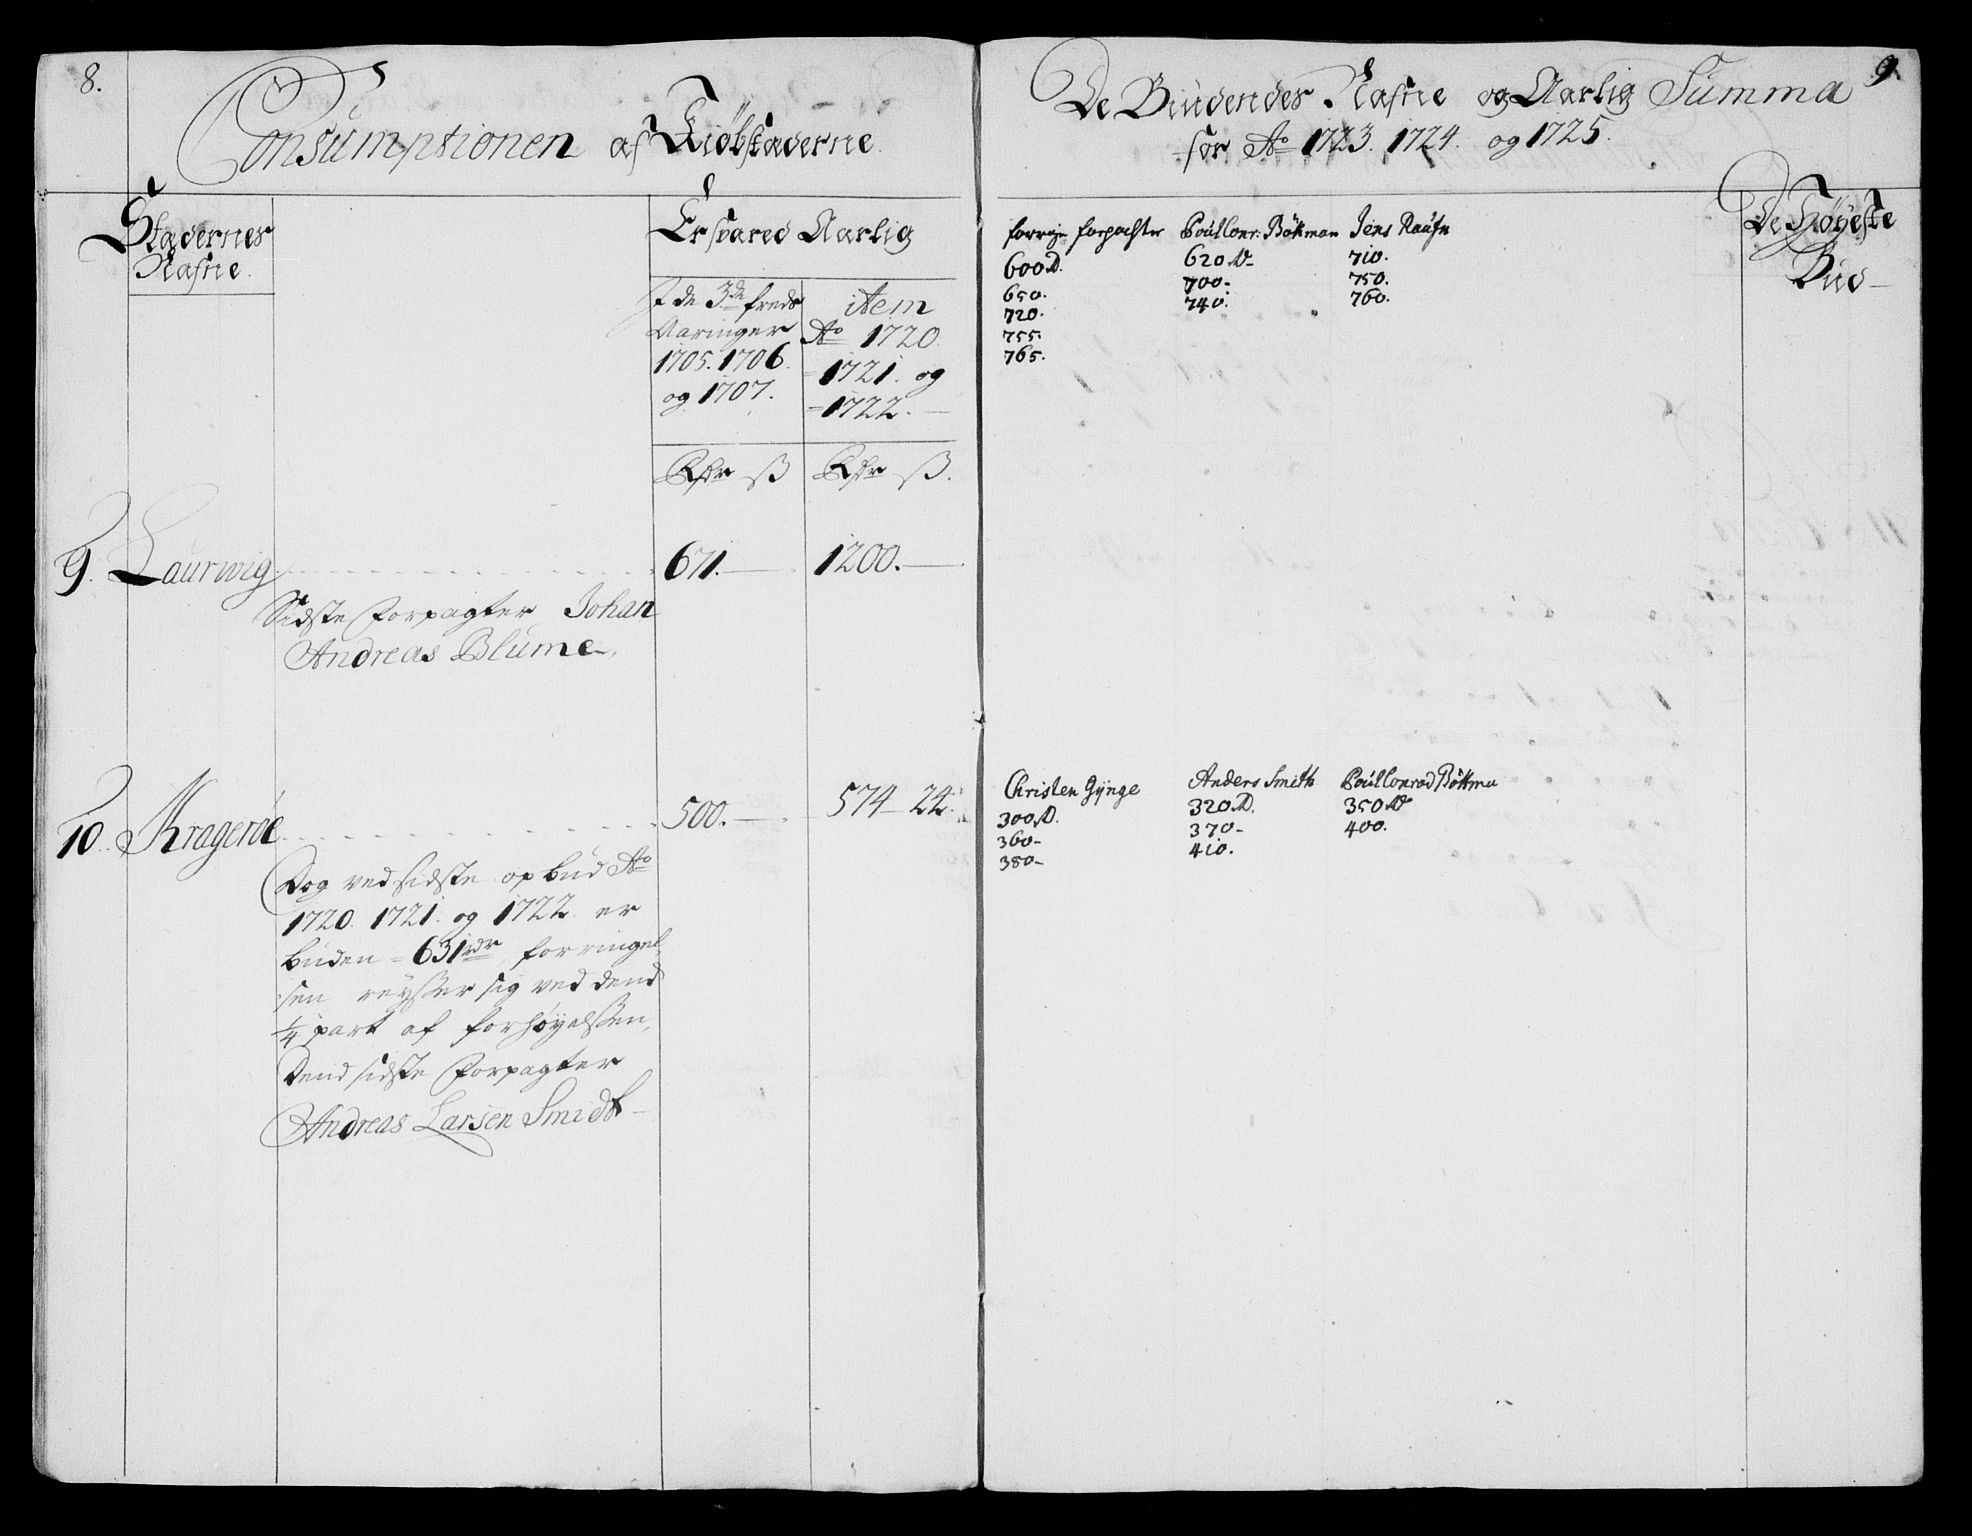 8.
Consumptionen af Kiøbstæderne
Stædernes
Nafne.
Er svared Aarlig
J de 3de freds
Aaringer
1705. 1706.
og 1707.
item
Ao 1720.
1721. og
1722.
Rdr ß
Rdr ß.
9. Laurwig
671.
1200.
Sidste Forpagter Johan
Andreas Blume
10. Kragerøe
500.
574 - 24.
Dog ved sidste opbud Ao
1720. 1721. og 1722. er
buden = 631 rdr, forringel-
sen reyßer sig ved dend
1/4 part af forhøyelßen,
Dend sidste Forpagter
Andreas Larsen Smidt
9.
De Biudendes Nafne og Aarlig Summa
for Ao 1723. 1724. og 1725.
De Høyeste
Bud
forrige forpagter Poul Conr: Bökman Jens
600 D. 620 D 710.
650. 700. 750.
720. 740. 760.
755.
765.
Christen Gÿnge Anders Smith Poul Conrad Böttma
300 D. 320 D. 350 D
360 370 400.
380 410.